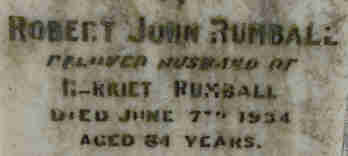 ROBERT JOHN RUMBALL
BELOVED HUSBAND OF
HARRIET RUMBALL
DIED JUNE 7TH 1934
AGED 84 YEARS.